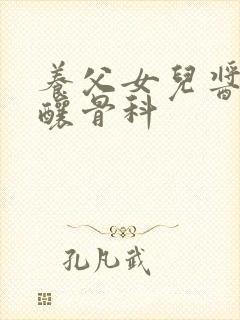 養父女兒醬
釀骨科
孔凡武